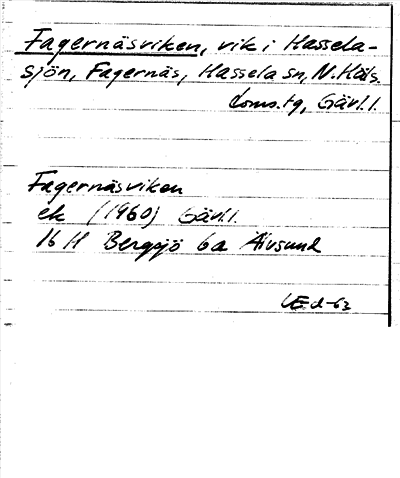 Fagernäsviken, vik i Hassela-
sjön, Fagernäs, Hassela sn, N. Häls.
doms.tg, Gävl.l.
Fagernäsviken
ek (1960) Gävl.l.
16 H Bergsjö 6a Älvsund